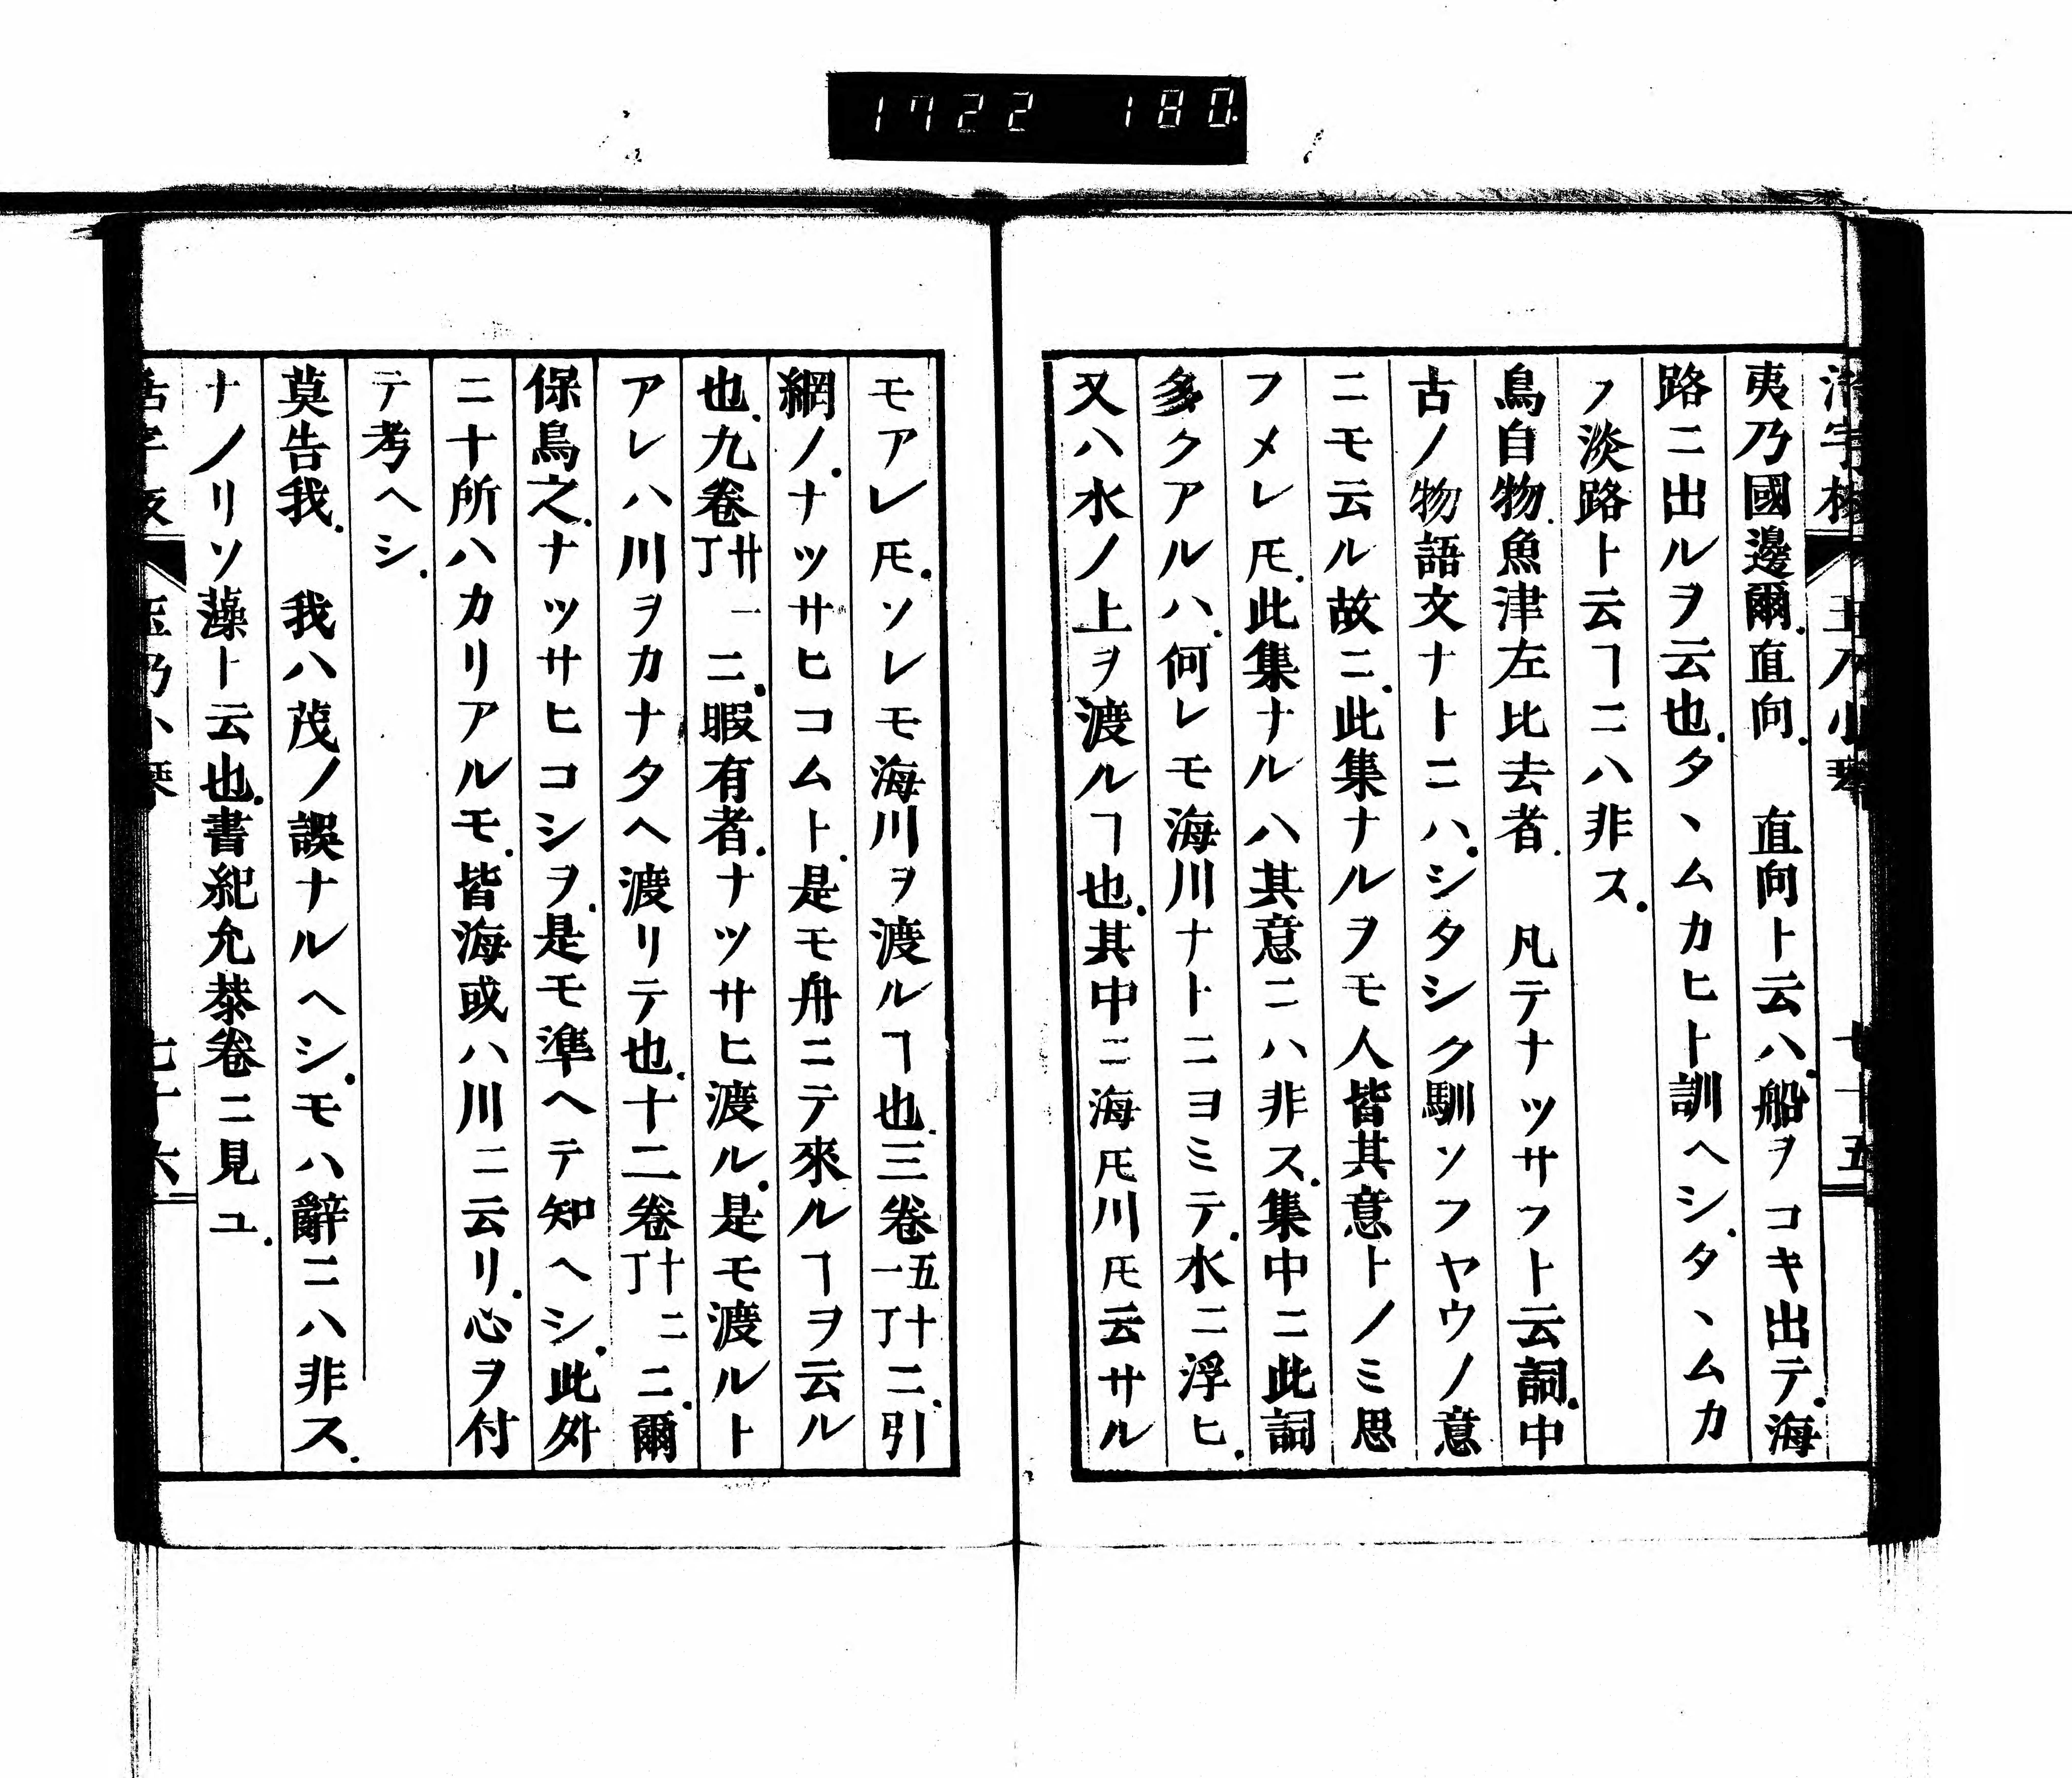 1722 180
夷乃國邊爾.直向.　直向ト云ハ.船ヲコキ出テ.海
路ニ出ルヲ云也.タヽムカヒト訓ヘシ.タヽムカ
フ淡路ト云ヿニハ非ス.
鳥自物.魚津左比去者.　凡テナツサフト云詞.中
古ノ物語文ナトニハ.シタシク馴ソフヤウノ意
ニモ云ル故ニ.此集ナルヲモ人皆其意トノミ思
フメレ𪜈.此集ナルハ其意ニハ非ス.集中ニ此詞
多クアルハ.何レモ海川ナトニヨミテ.水ニ浮ヒ.
又ハ水ノ上ヲ渡ルヿ也.其中ニ海𪜈川𪜈云サル
モアレ𪜈.ソレモ海川ヲ渡ルヿ也.三卷五十一丁ニ.引
網ノ.ナツサヒコムト.是モ舟ニテ來ルヿヲ云ル
也.九卷廿一丁ニ.暇有者.ナツサヒ渡ル.是モ渡ルト
アレハ川ヲカナタヘ渡リテ也.十二卷十二丁ニ.爾
保鳥之.ナツサヒコシヲ.是モ準ヘテ知ヘシ.此外
ニ十所ハカリアルモ.皆海或ハ川ニ云リ.心ヲ付
テ考ヘシ.
莫告我.　我ハ茂ノ誤ナルヘシ.モハ辭ニハ非ス.
ナノリソ藻ト云也.書紀允恭卷ニ見ユ.